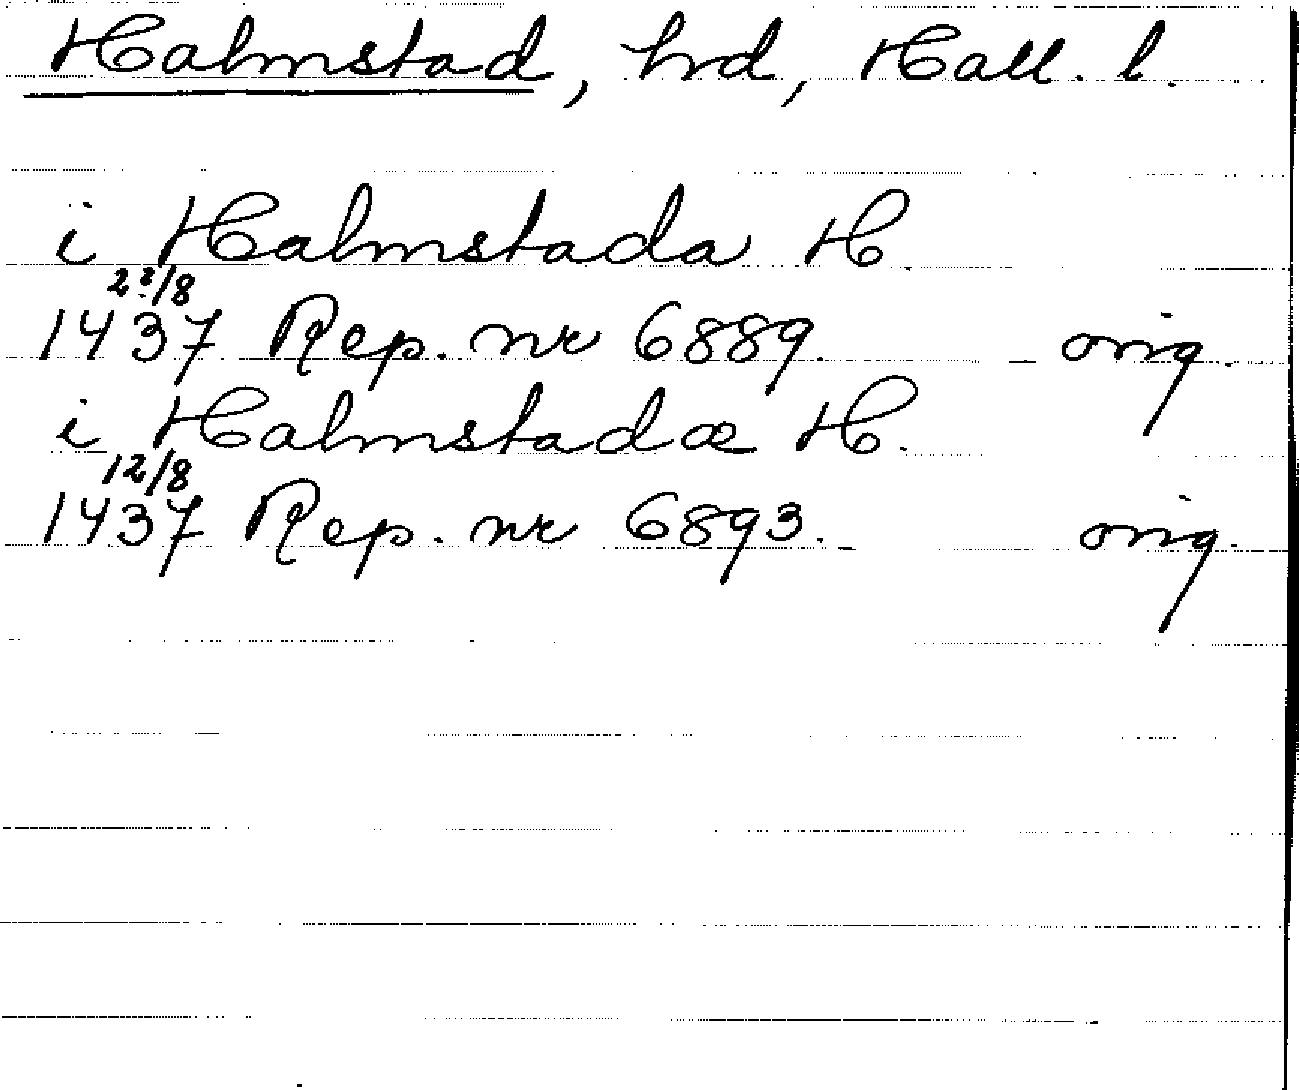 Halmstad, hd, Hall. l.
i Halmstada H
22/8
1437 Rep. nr 6889. orig.
i Halmstadæ H.
12/8
1437 Rep. nr 6893. orig.